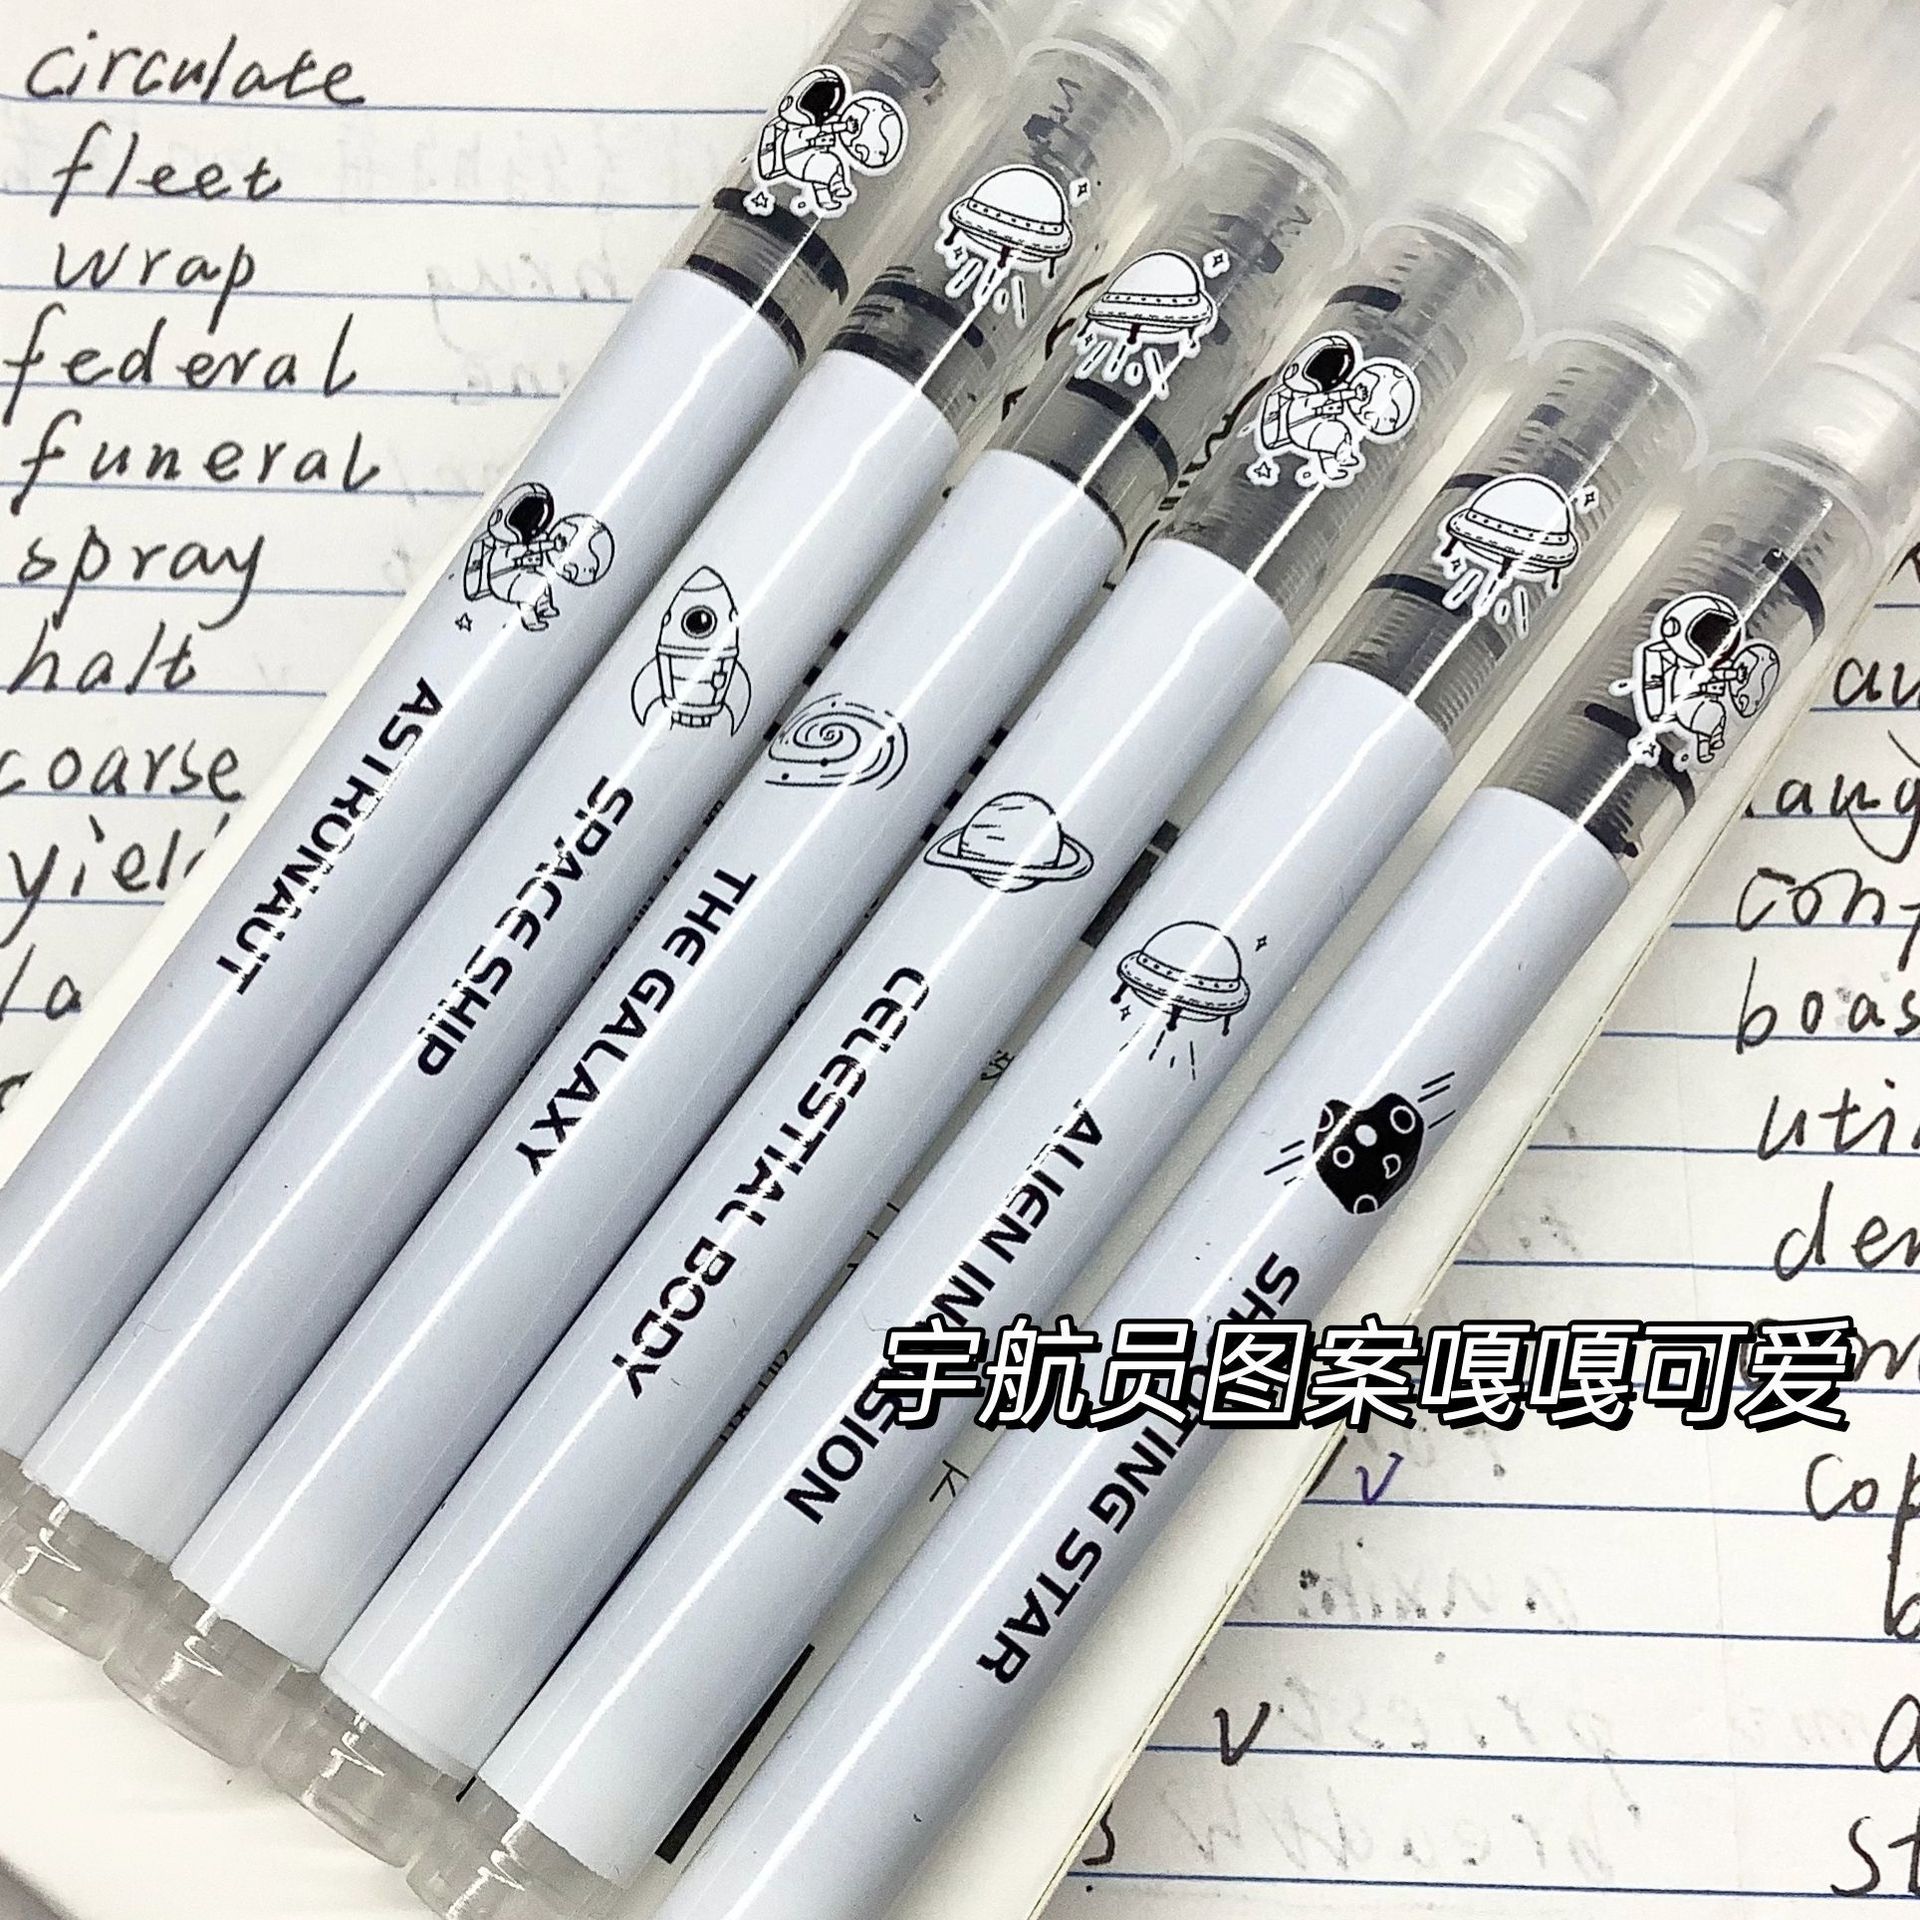 circulate
fleet
wrap
federal
funeral
spray
halt
coarse
yiel
la
ASTRONAUT
SPACE SHIP
THE GALAXY
CELESTIAL BODY
ALIEN INVASION
SHOOTING STAR
宇航员图案嘎嘎可爱
au
con
boas
uti
den
cop
st